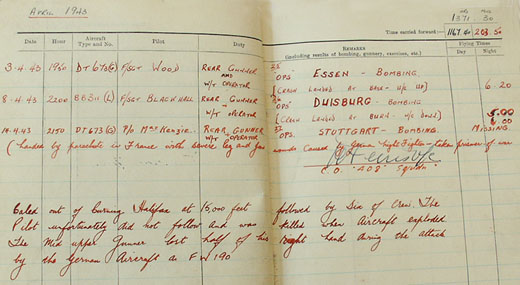 APRIL 1943
HRS
1371 30
Time carried forward:— 1167.40 203.50
Date Hour Aircraft Type and No. Pilot Duty REMARKS Flying Times
(including results of bombing, gunnery, exercises, etc.) Day Night
3-4-43 1950 DT 673 (G) F/SGT. WOOD REAR GUNNER AND W/T OPERATOR "OPS" ESSEN - BOMBING
(CRASH LANDED AT BASE - U/C UP) 6-20
8-4-43 2200 BB311 (L) F/SGT. BLACKHALL REAR GUNNER W/T OPERATOR "OPS" DUISBURG - BOMBING
(CRASH LANDED AT BURN - U/C DOWN) 5.00
14-4-43 2150 DT 673 (G) P/O MacKenzie. REAR GUNNER W/T OPERATOR "OPS" STUTTGART - BOMBING. MISSING
(landed by parachute in France with severe leg and face wounds caused by German Night Fighter - taken prisoner of war
C.O. "408" SQUADRON
Baled out of burning Halifax at 15,000 feet followed by Six of Crew. The
Pilot unfortunately did not follow and was killed when Aircraft exploded
The Mid upper Gunner lost half of his right hand during the attack
by the German Aircraft as FW 190